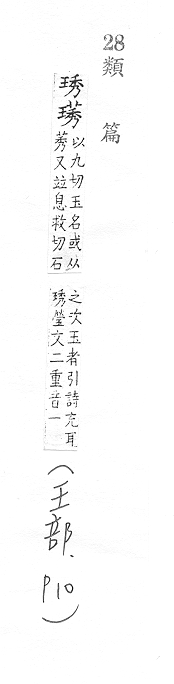 28類篇
琇璓
以九切玉名或从
莠又竝息救切石
之次玉者引詩充耳
琇瑩文二重音一
(王部. P10)